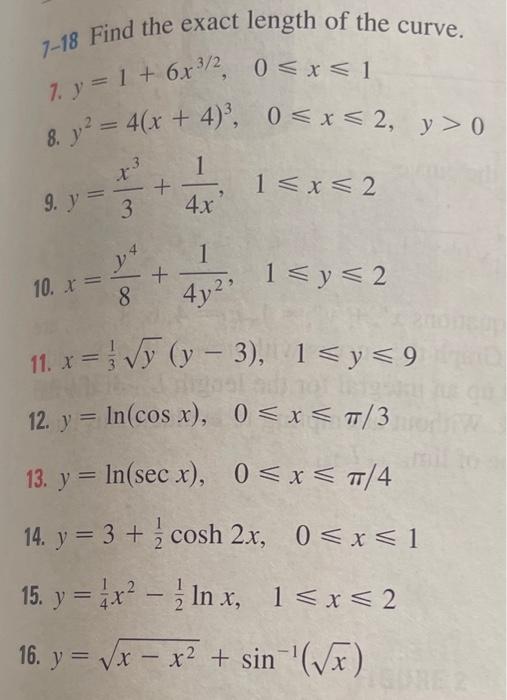 7–18 Find the exact length of the curve.
7. y = 1 + 6x^{3/2}, 0 ⩽ x ⩽ 1
8. y² = 4(x + 4)³, 0 ⩽ x ⩽ 2, y > 0
9. y = x³/3 + 1/(4x), 1 ⩽ x ⩽ 2
10. x = y⁴/8 + 1/(4y²), 1 ⩽ y ⩽ 2
11. x = ⅓ √y (y − 3), 1 ⩽ y ⩽ 9
12. y = ln(cos x), 0 ⩽ x ⩽ π/3
13. y = ln(sec x), 0 ⩽ x ⩽ π/4
14. y = 3 + ½ cosh 2x, 0 ⩽ x ⩽ 1
15. y = ¼x² − ½ ln x, 1 ⩽ x ⩽ 2
16. y = √(x − x²) + sin⁻¹(√x)